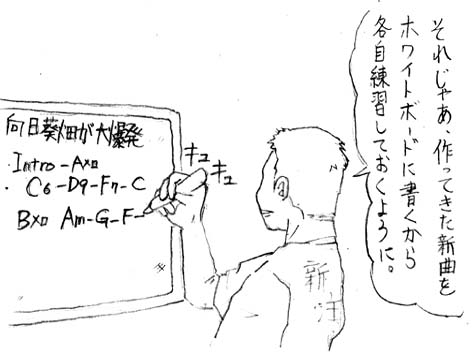 それじゃあ、作ってきた新曲を
ホワイトボードに書くから
各自練習しておくように。
向日葵畑が大爆発
・Intro-Aメロ
・C6-D9-F7-C
Bメロ Am-G-F-
キュ
キュ
新注